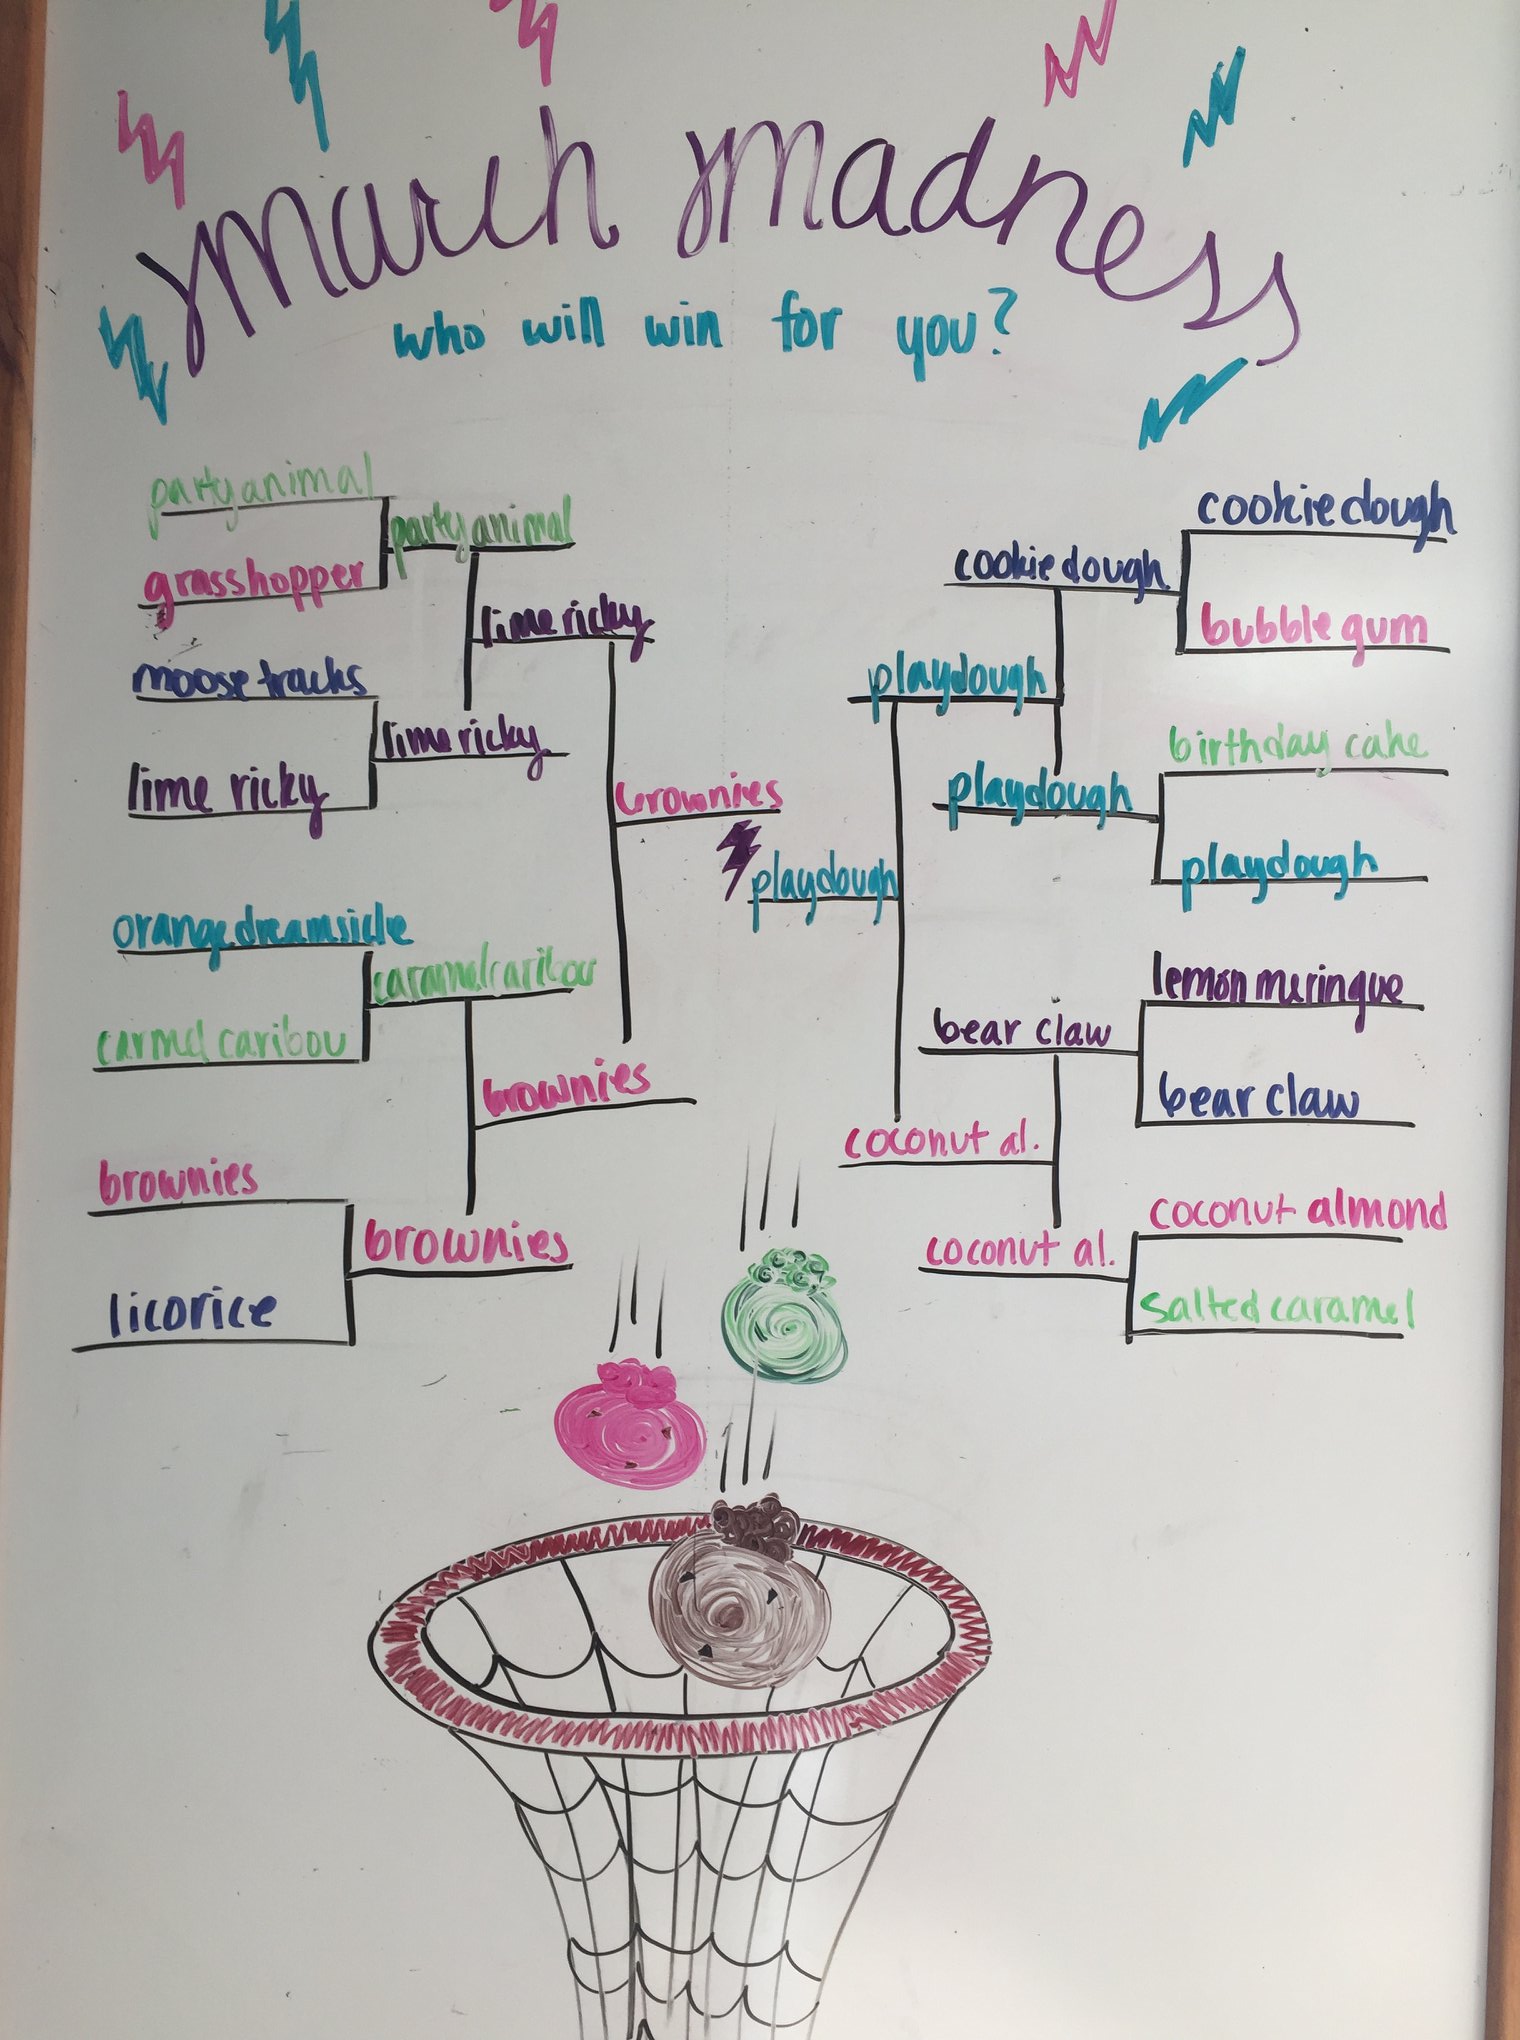 march madness
who will win for you?
party animal
grasshopper
moose tracks
lime ricky
orange dreamsicle
carmel caribou
brownies
licorice
party animal
lime ricky
caramel caribou
brownies
lime ricky
brownies
brownies
playdough
playdough
coconut al.
cookie dough
playdough
bear claw
coconut al.
cookie dough
bubble gum
birthday cake
playdough
lemon meringue
bear claw
coconut almond
salted caramel